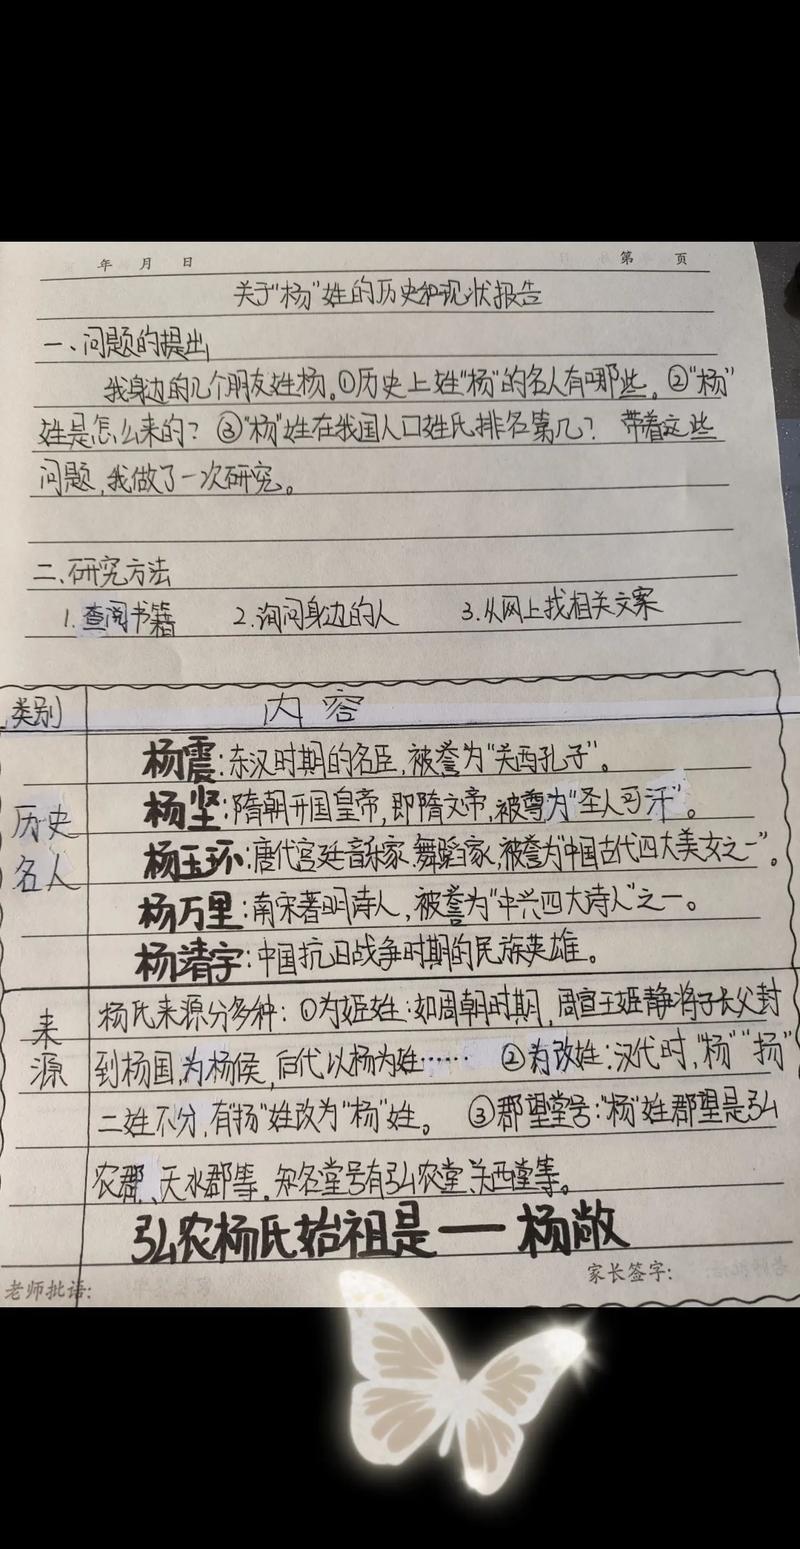 年 月 日 第 页
关于“杨”姓的历史和现状报告
一、问题的提出
我身边的几个朋友姓杨。①历史上姓“杨”的名人有哪些。②“杨”
姓是怎么来的?③“杨”姓在我国人口姓氏排名第几? 带着这些
问题,我做了一次研究。
二.研究方法
1.查阅书籍 2.询问身边的人 3.从网上找相关文案
类别 内容
历史名人
杨震:东汉时期的名臣,被誉为“关西孔子”。
杨坚:隋朝开国皇帝,即隋文帝,被尊为“圣人可汗”。
杨玉环:唐代宫廷音乐家.舞蹈家,被誉为“中国古代四大美女之一”。
杨万里:南宋著明诗人,被誉为“中兴四大诗人”之一。
杨靖宇:中国抗日战争时期的民族英雄。
来源
杨氏来源分多种:①为姬姓:如周朝时期,周宣王姬静将子长父封
到杨国,为杨侯,后代以杨为姓…… ②为改姓:汉代时,“杨”“扬”
二姓不分,有“扬”姓改为“杨”姓。 ③郡望堂号:“杨”姓郡望是弘
农郡、天水郡等.知名堂号有弘农堂、关西堂等。
弘农杨氏始祖是——杨敞
老师批语: 家长签字: